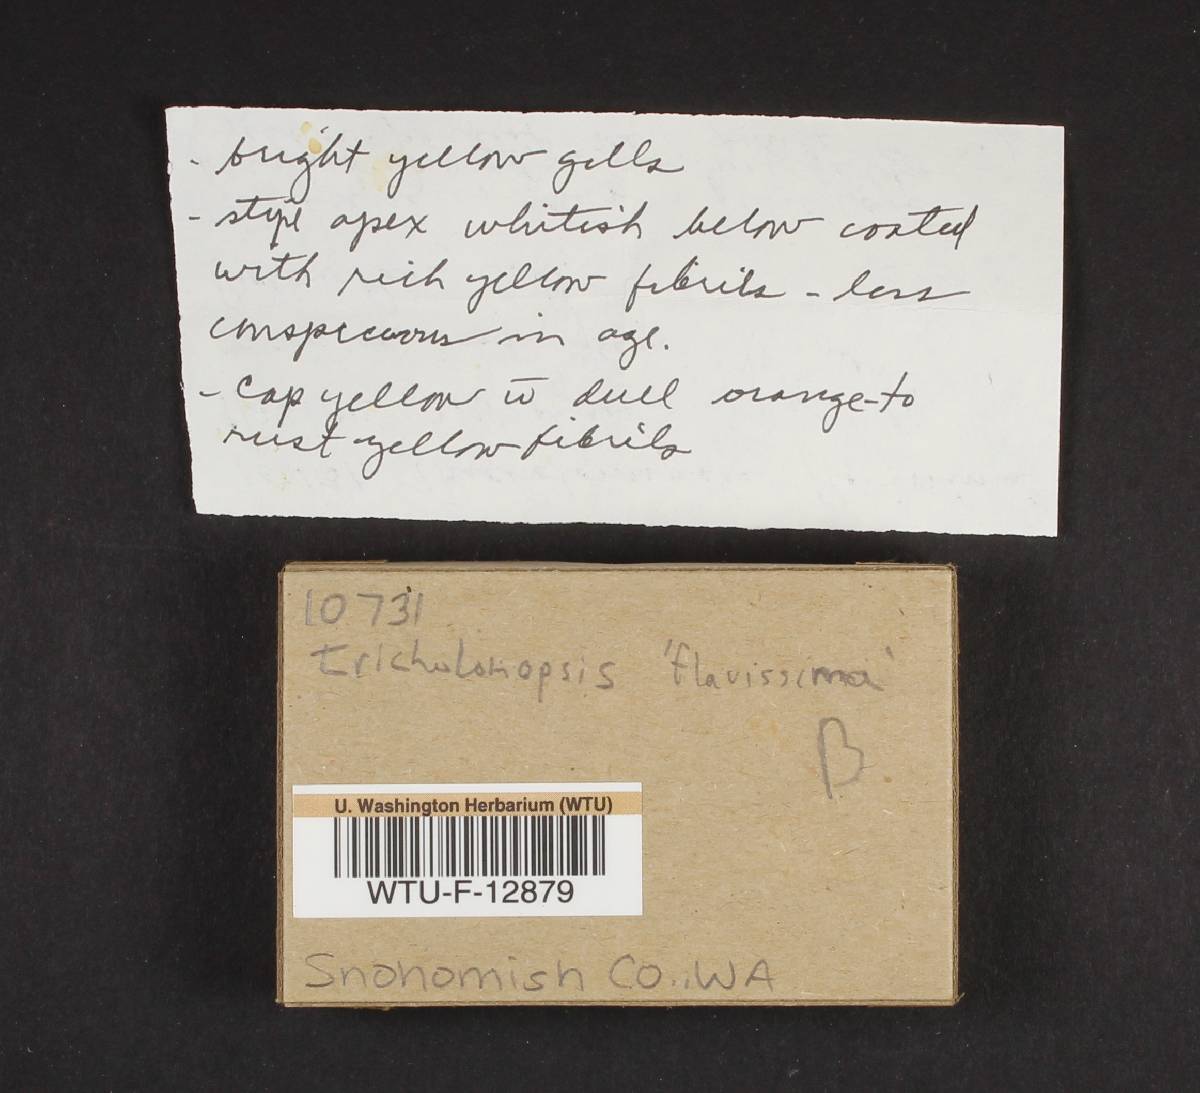 - bright yellow gills
- stipe apex whitish below coated
with rich yellow fibrils - less
conspicuous in age.
- Cap yellow w̄ dull orange-to
rust-yellow fibrils
10731
tricholomopsis 'flavissima'
B
U. Washington Herbarium (WTU)
WTU-F-12879
Snohomish Co., WA